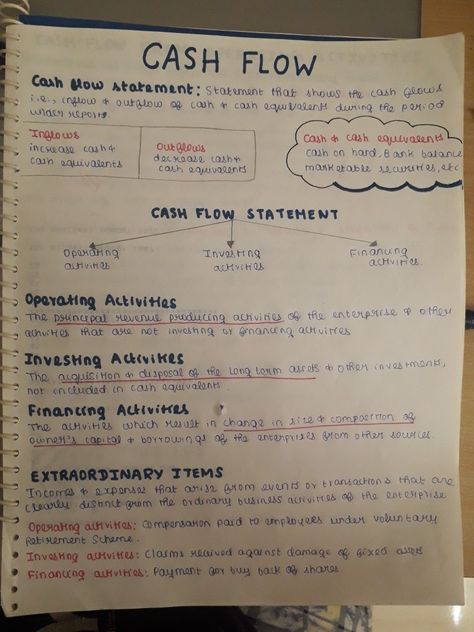 CASH FLOW
Cash flow statement: Statement that shows the cash flows
i.e., inflow & outflow of cash & cash equivalents during the period
under report.
Inflows
increase cash &
cash equivalents
Outflows
decrease cash &
cash equivalents
Cash & cash equivalents
cash on hand, Bank balance
marketable securities, etc
CASH FLOW STATEMENT
Operating
activities
Investing
activities
Financing
activities
Operating Activities
The principal revenue producing activities of the enterprise & other
activities that are not investing or financing activities
Investing Activities
The acquisition & disposal of the long term assets & other investments,
not included in cash equivalents.
Financing Activities
The activities which result in change in size & composition of
owner's capital & borrowings of the enterprises from other sources.
EXTRAORDINARY ITEMS
Incomes & expenses that arise from events or transactions that are
clearly distinct from the ordinary business activities of the enterprise
Operating activities: Compensation paid to employees under voluntary
Retirement Scheme.
Investing activities: Claims received against damage of fixed asset
Financing activities: Payment for buy back of shares.